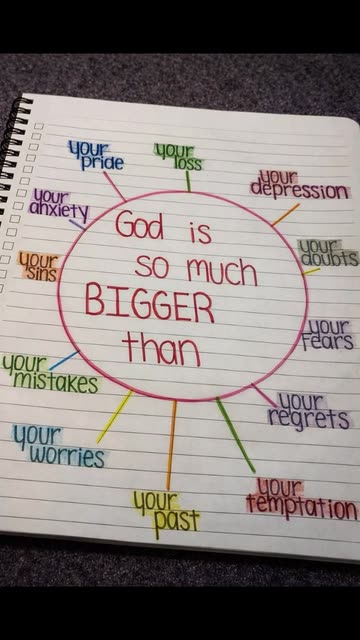 God is
so much
BIGGER
than
your
pride
your
loss
your
depression
your
doubts
your
fears
your
regrets
your
temptation
your
past
your
worries
your
mistakes
your
sins
your
anxiety